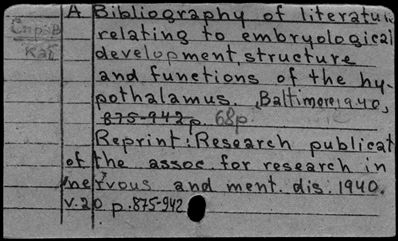 A Bibliography of literature
Спр.В relating to embryological
каб development, structure
and functions of the hy-
pothalamus. Baltimore, 1940,
875-942 p. 68p.
Reprint: Research publicat
of the assoc. for research in
nervous and ment. dis. 1940.
v.20 p. 875-942